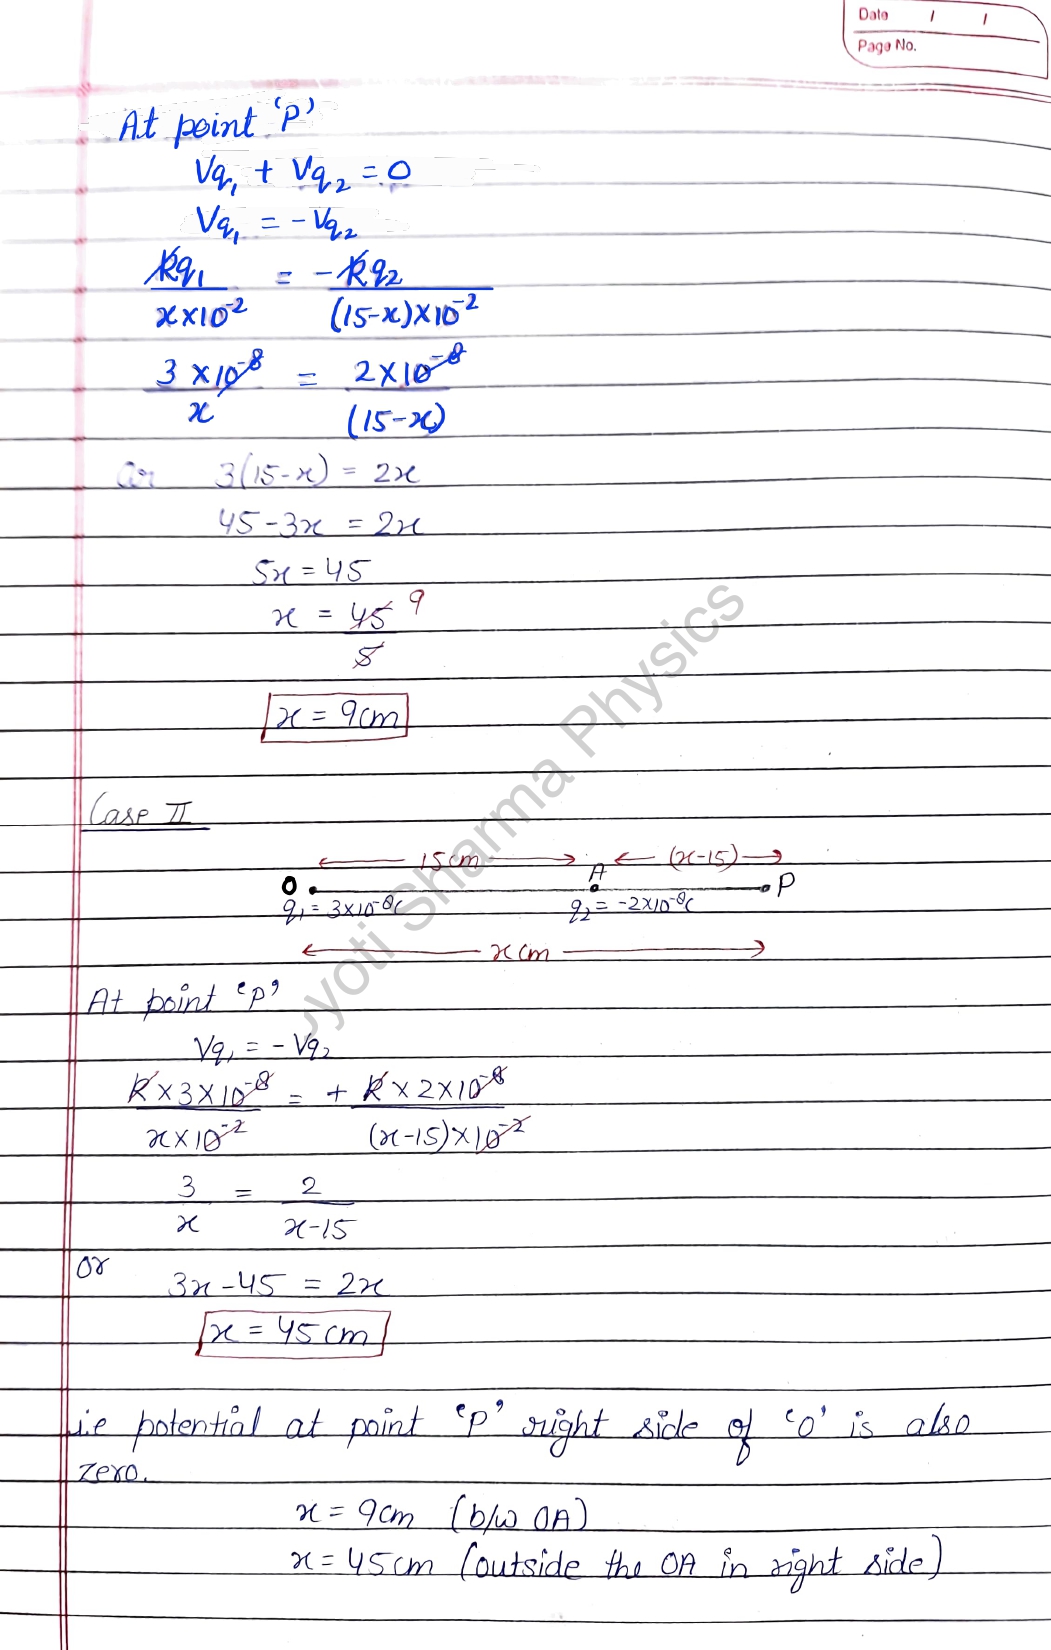 Date / /
Page No.
At point 'P'
Vq₁ + Vq₂ = 0
Vq₁ = -Vq₂
kq₁/x×10⁻² = -kq₂/(15-x)×10⁻²
3×10⁻⁸/x = 2×10⁻⁸/(15-x)
or 3(15-x) = 2x
45-3x = 2x
5x = 45
x = 45/5 9
x = 9cm
Case II
15cm (x-15)
O A P
q₁ = 3×10⁻⁸C q₂ = -2×10⁻⁸C
x cm
At point 'P'
Vq₁ = -Vq₂
k×3×10⁻⁸/x×10⁻² = + k×2×10⁻⁸/(x-15)×10⁻²
3/x = 2/x-15
or 3x-45 = 2x
x = 45cm
i.e potential at point 'P' right side of 'O' is also
zero.
x = 9cm (b/w OA)
x = 45cm (outside the OA in right side)
Jyoti Sharma Physics